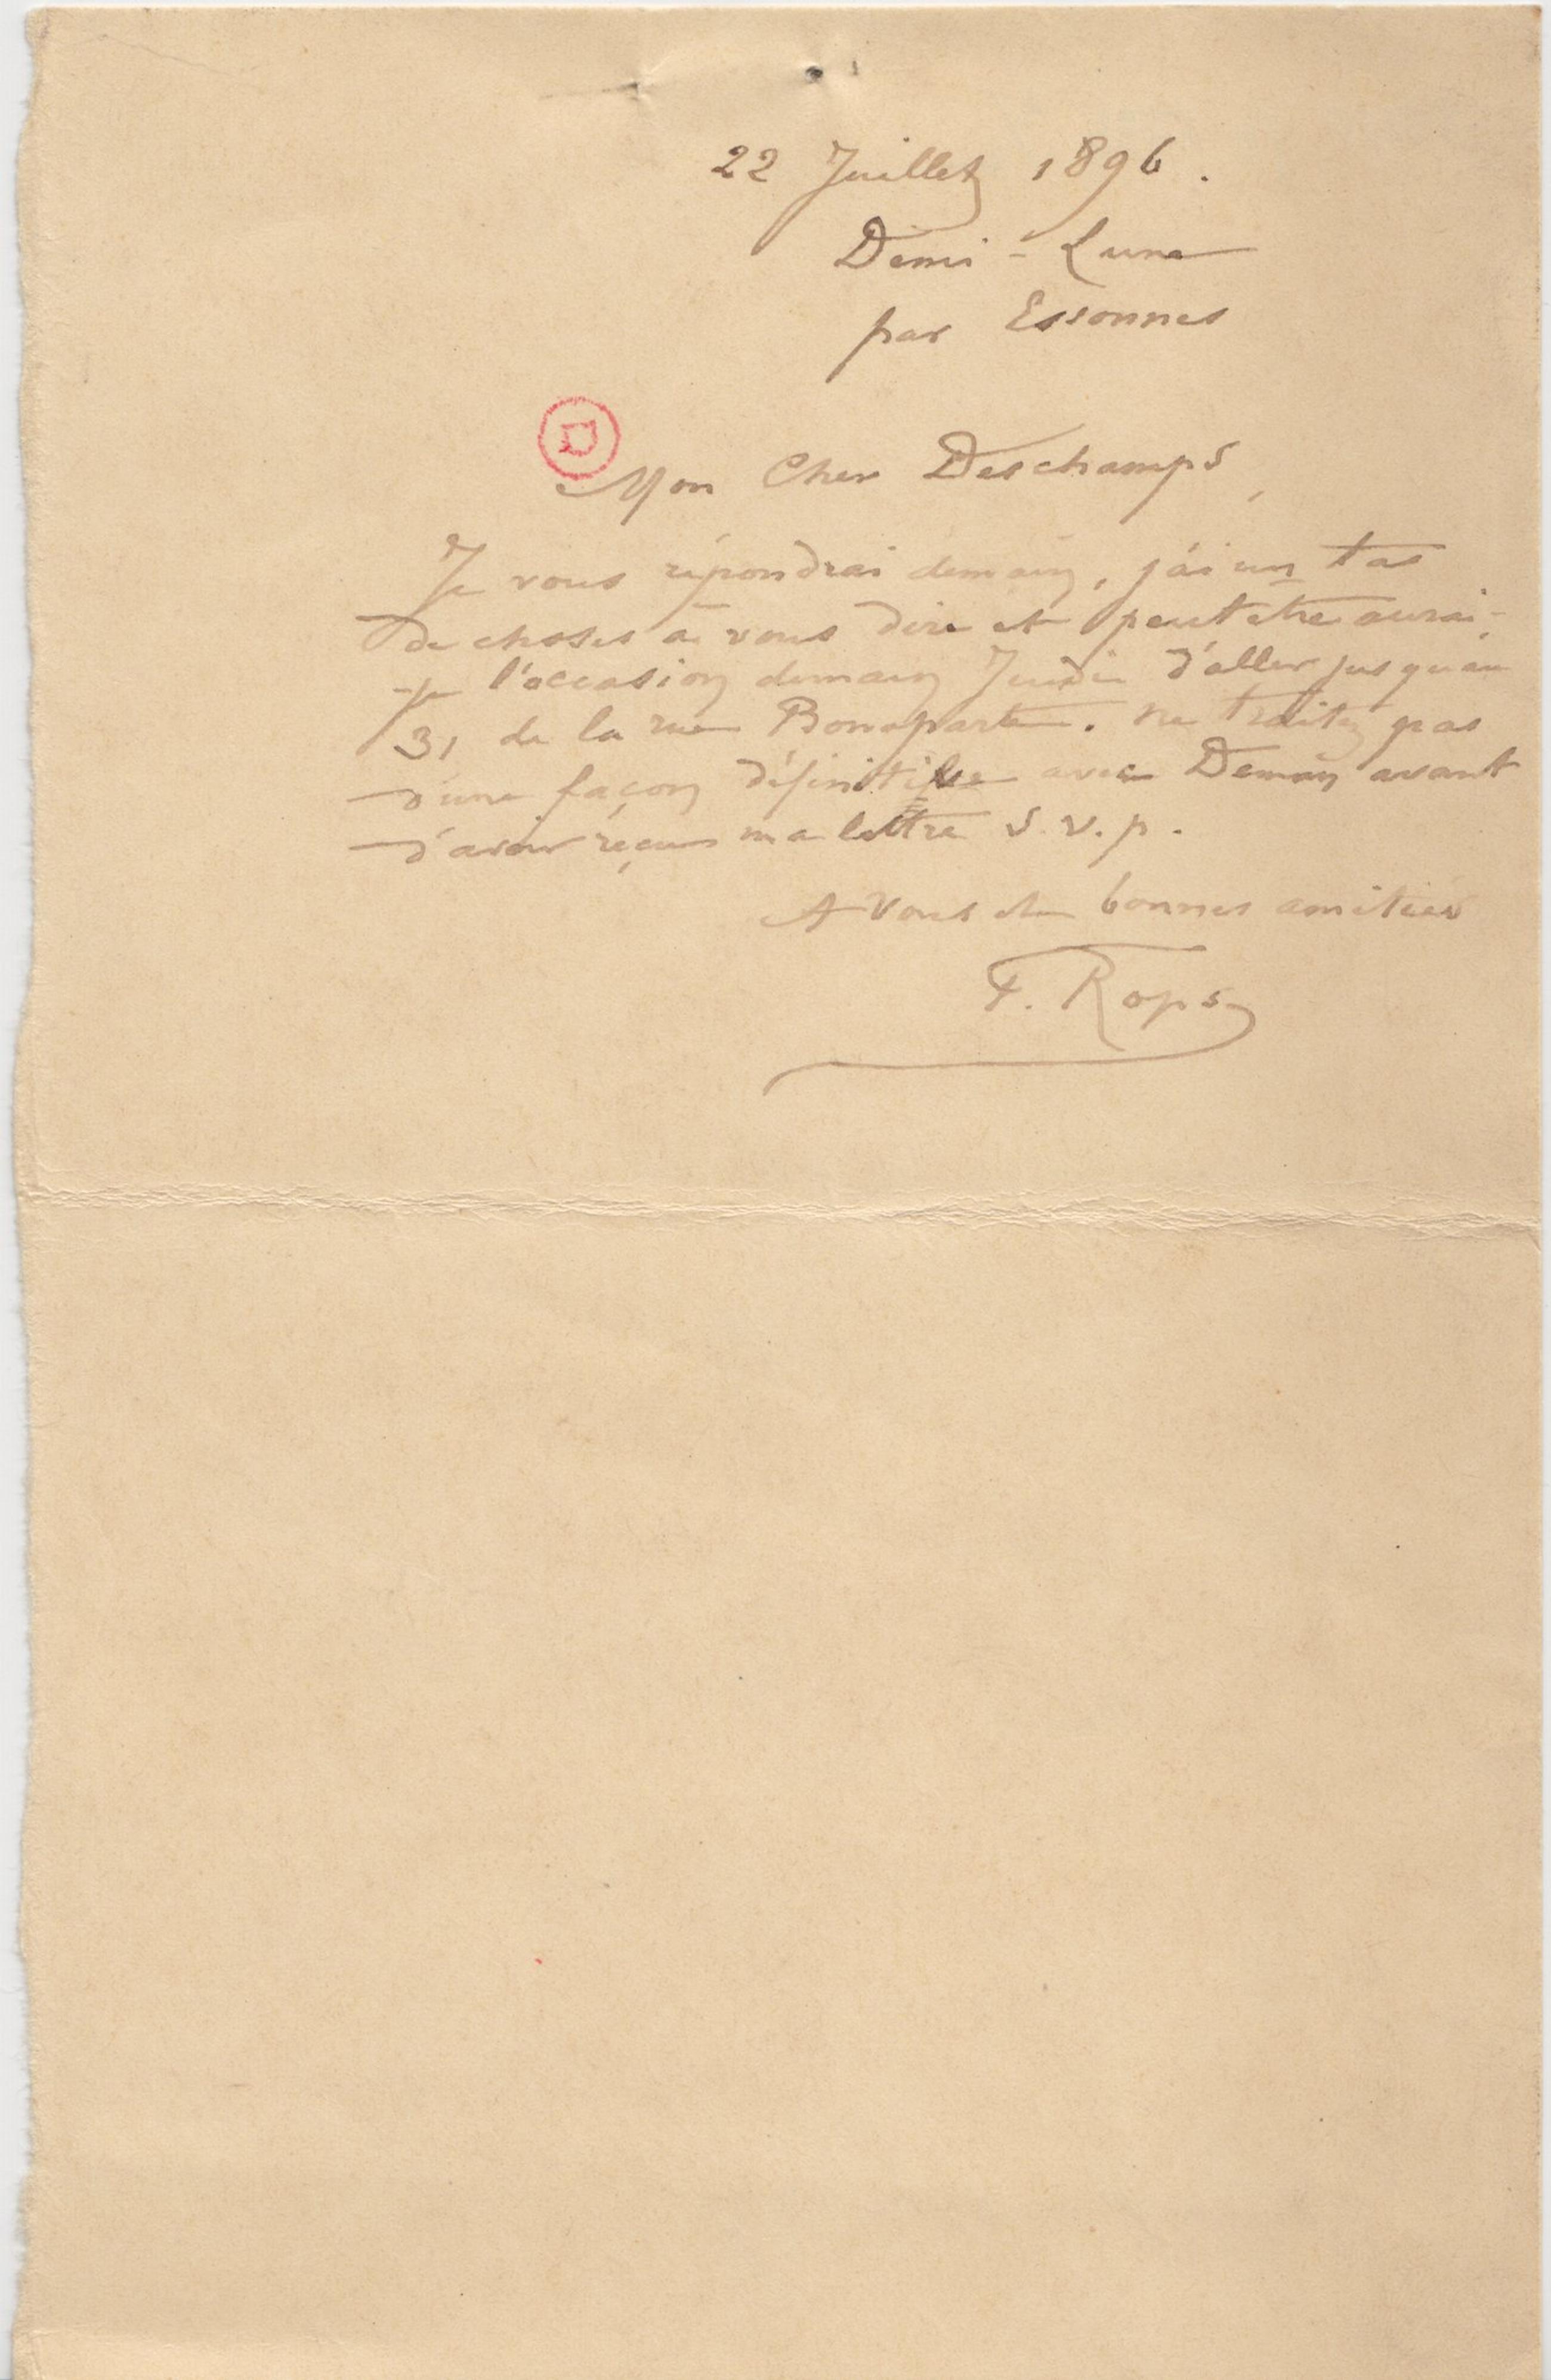 22 Juillet 1896.
Demi-Lune
par Essonnes
Mon Cher Deschamps,
Je vous répondrai demain, j'ai un tas
de choses à vous dire et peut être aurai-
-je l'occasion demain Jeudi d'aller jusqu'au
31 de la rue Bonaparte. ne traitez pas
d'une façon définitive avec Deman avant
d'avoir reçu ma lettre s.v.p.
A vous de bonnes amitiés
F. Rops